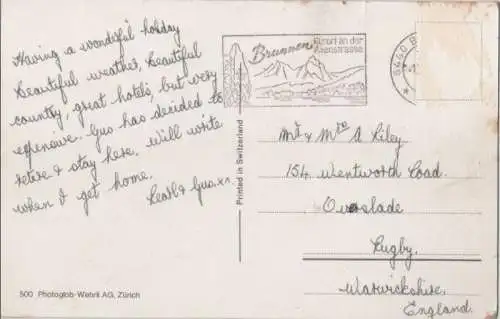 Having a wonderful holiday
beautiful weather, beautiful
country, great hotels, but very
expensive. Gus has decided to
retire & stay here. Will write
when I get home.
Pearl & Gus. xx
500 Photoglob-Wehrli AG, Zürich
Printed in Switzerland
Brunnen
Kurort an der
Axenstrasse
6440 B
Mr & Mrs A Riley
154 Wentworth Road.
Overslade
Rugby.
Warwickshire.
England.